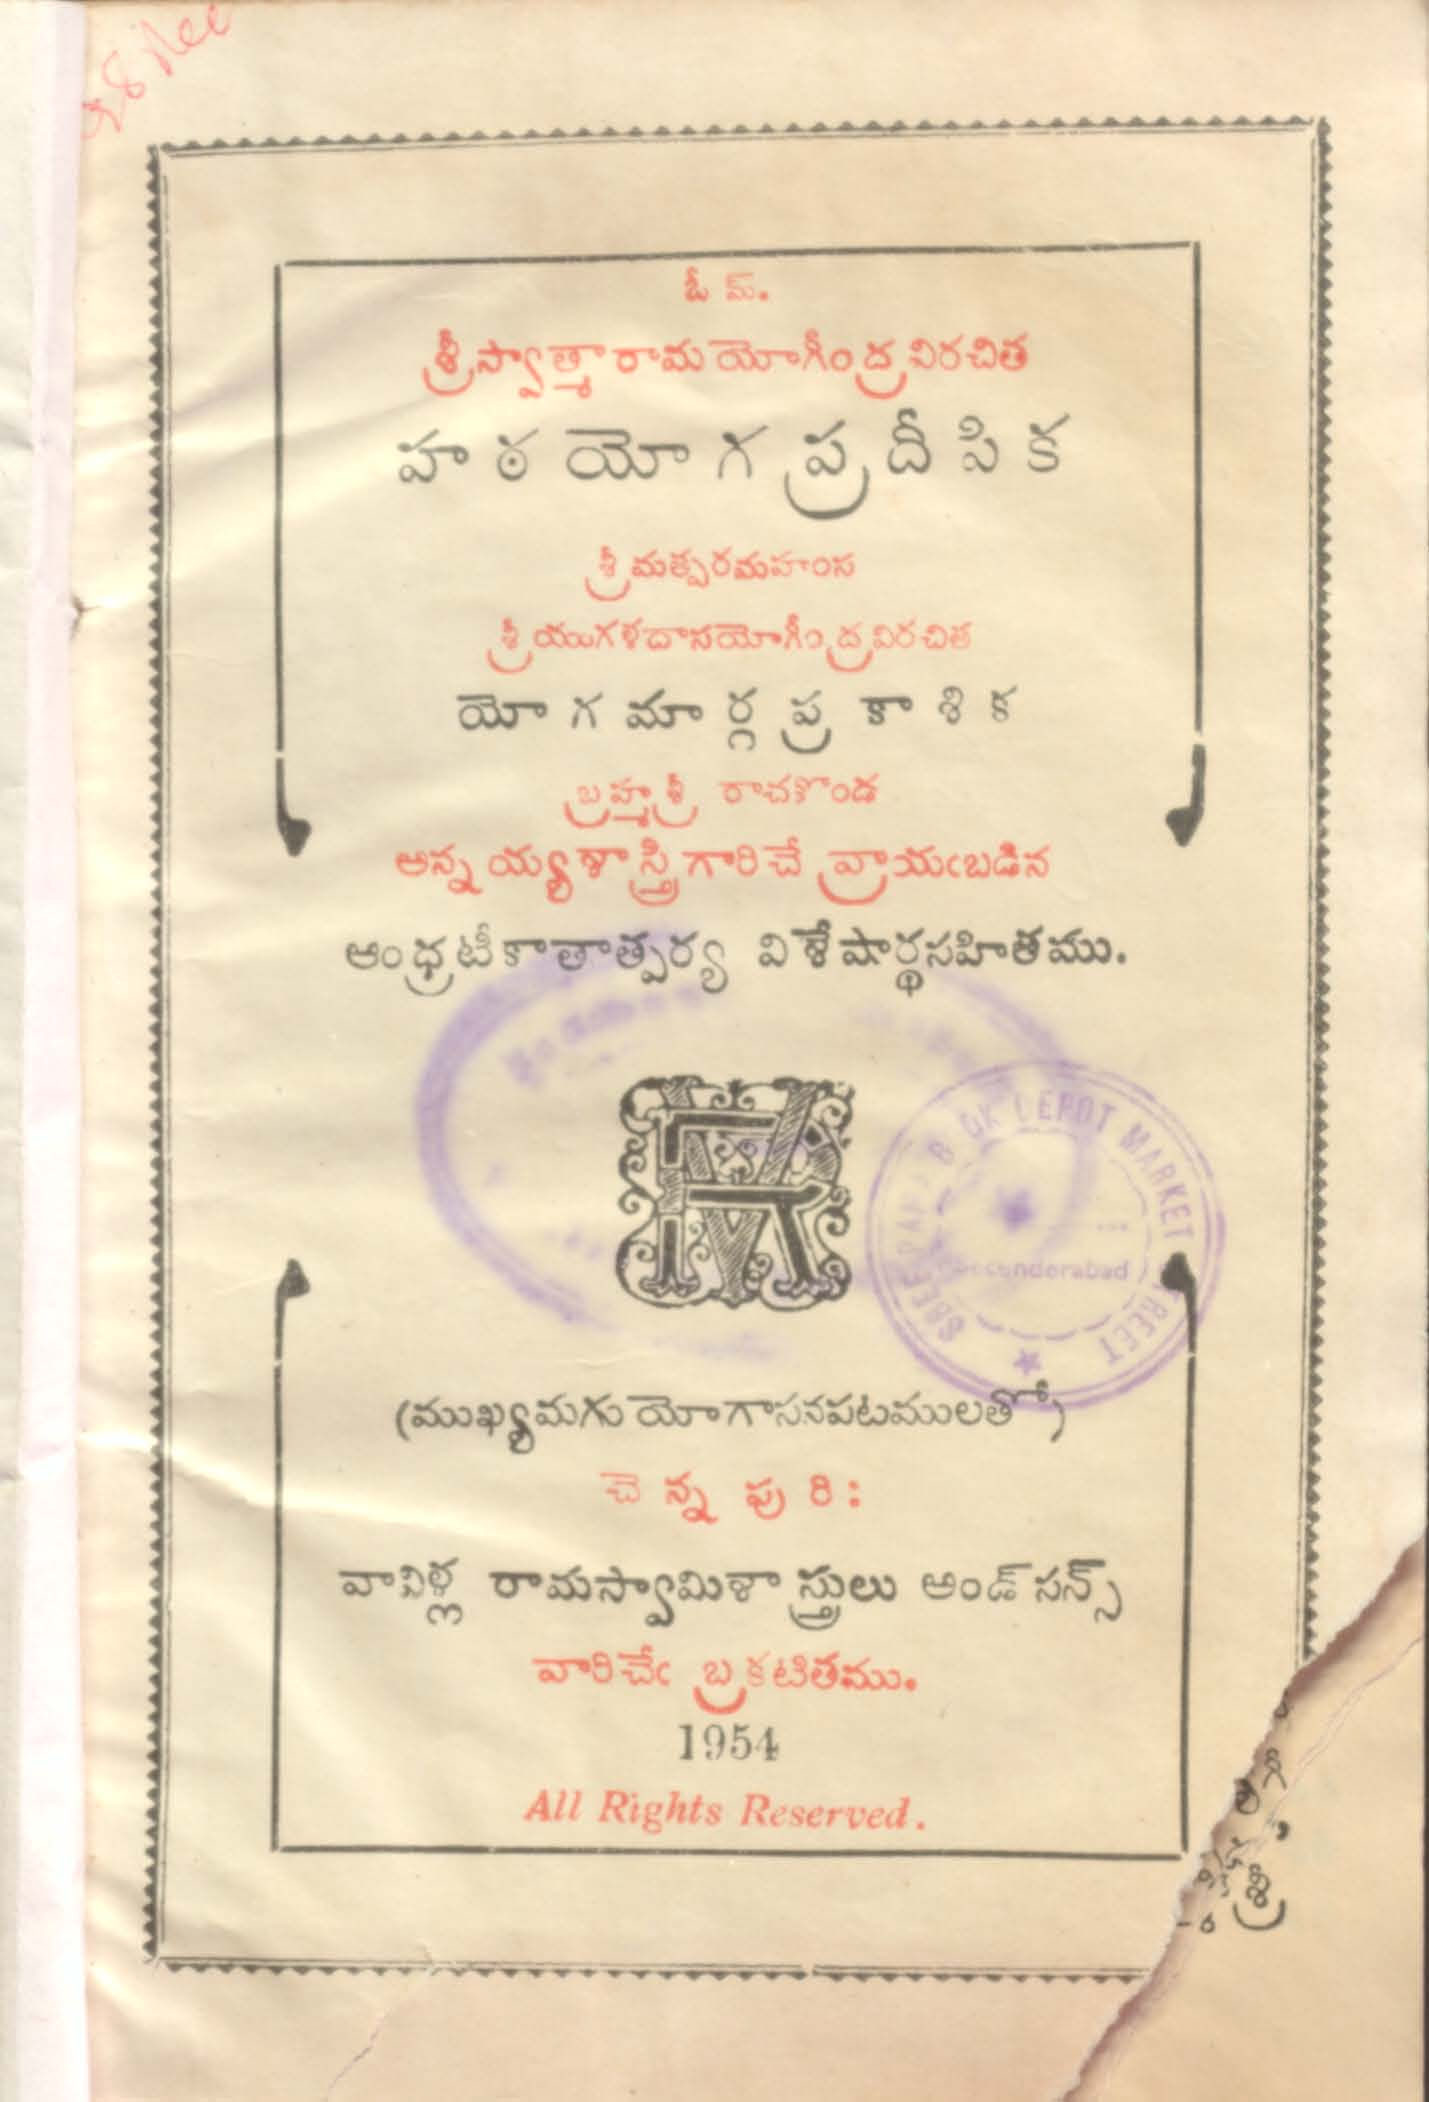 ఓమ్.
శ్రీస్వాత్మారామయోగీంద్రవిరచిత
హఠయోగప్రదీపిక
శ్రీమత్పరమహంస
శ్రీయుగళదాసయోగీంద్రవిరచిత
యోగమార్గప్రకాశిక
బ్రహ్మశ్రీ రాచకొండ
అన్నయ్యశాస్త్రిగారిచే వ్రాయఁబడిన
ఆంధ్రటీకాతాత్పర్య విశేషార్థసహితము.
BOOK DEPOT MARKET STREET
Secunderabad
(ముఖ్యమగు యోగాసనపటములతో)
చెన్నపురి:
వావిళ్ల రామస్వామిశాస్త్రులు అండ్ సన్స్
వారిచేఁ బ్రకటితము.
1954
All Rights Reserved.
శ్రీ